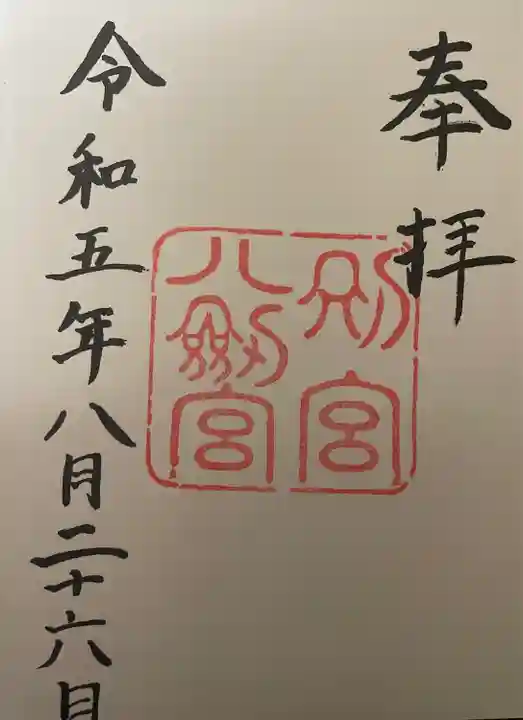 奉拝
別宮
八剱宮
令和五年八月二十六日